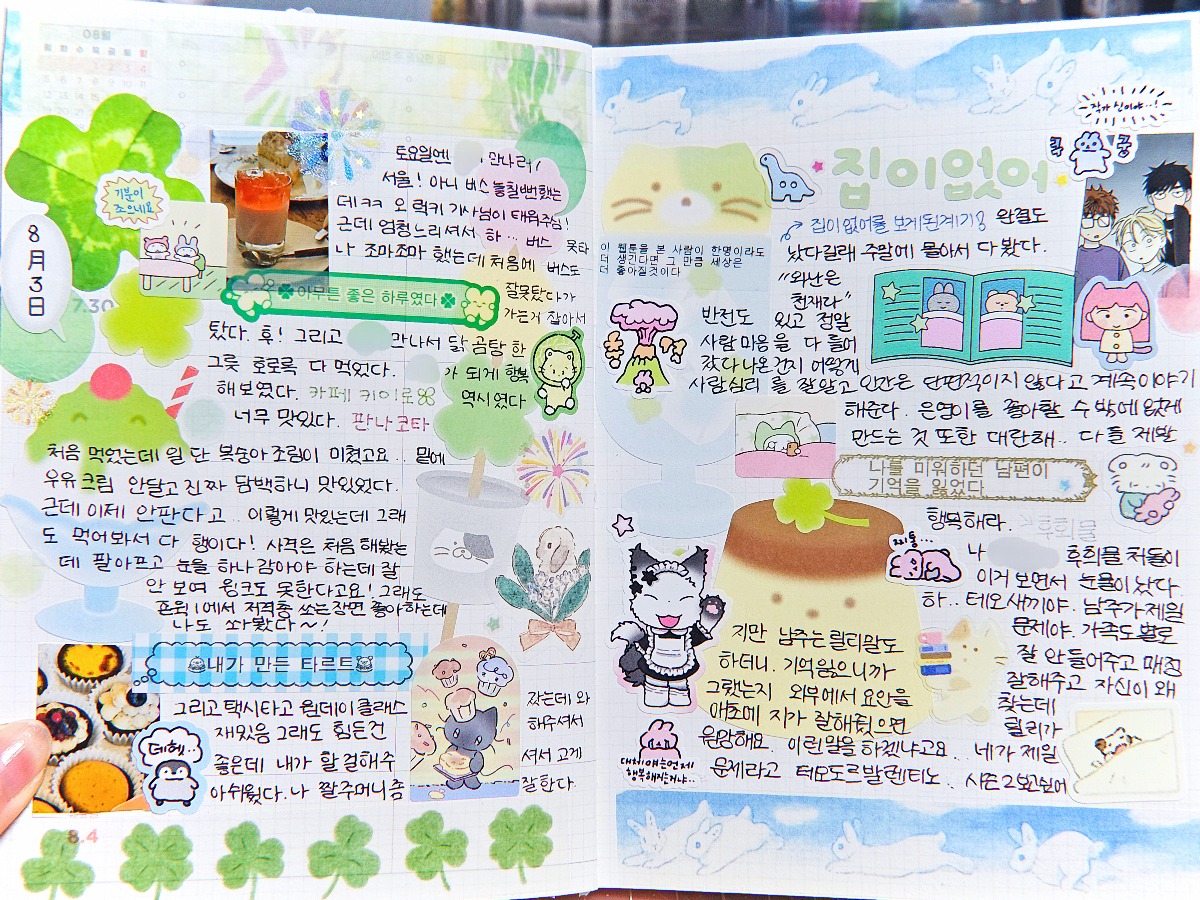 08월
월 화 수 목 금 토 일
기분이
조으네요
8
月
3
日
7.30
토요일엔 만나러
서울! 아니 버스 놓칠뻔했는
데ㅋㅋ 오 럭키 기사님이 태워주심!
근데 엄청느리셔서 하... 버스 못타
나 조마조마 했는데 처음에 버스도
잘못탔다가
아무튼 좋은 하루였다
가는거 잡아서
탔다. 휴! 그리고 만나서 닭곰탕 한
그릇 호로록 다 먹었다. 가 되게 행복
해보였다. 카페 키이로 역시였다
너무 맛있다. 판나코타
처음 먹었는데 일단 복숭아조림이 미쳤고요.. 밑에
우유크림 안달고 진짜 담백하니 맛있었다.
근데 이제 안판다고.. 이렇게 맛있는데 그래
도 먹어봐서 다행이다! 사격은 처음 해봤는
데 팔아프고 눈을 하나감아야 하는데 잘
안 보여 윙크도 못한다고요! 그래도
존윅1에서 저격총 쏘는장면 좋아하는데
나도 쏴봤다~!
내가 만든 타르트
그리고 택시타고 원데이클래스 갔는데 와
재밌음 그래도 힘든건 해주셔서
좋은데 내가 할걸해주 셔서 고게
아쉬웠다. 나 짤주머니줌 잘한다.
데헤..
8.4
작가 신이야..!
쿡
쿵
집이없어
집이없어를 보게된계기? 완결도
났다길래 주말에 몰아서 다 봤다.
이 웹툰을 본 사람이 한명이라도
더 생긴다면 그 만큼 세상은
더 좋아질것이다
"와난은
천재다"
반전도 있고 정말
사람마음을 다 들여
갔다 나온건지 어떻게
사람심리를 잘알고 인간은 단편적이지 않다고 계속이야기
해준다. 은영이를 좋아할 수 밖에 없게
만드는 것 또한 대단해.. 다들 제발
행복해라.
나를 미워하던 남편이
기억을 잃었다
→후회물
찌통..
나 후회물 처돌이
이거 보면서 눈물이 났다.
하.. 테오새끼야. 남주가 제일
문제야. 가족도 활로
잘 안 들어주고 매정
지만 남주는 릴리말도
하더니. 기억잃으니까
잘해주고 자신이 왜
그랬는지 외부에서 요인을
찾는데
애초에 지가 잘해줬으면
릴리가
원망해요. 이런말을 하겠냐고요.. 네가 제일
문제라고 테오도르발렌티노.. 시즌2보고싶어
대체 얘는 언제
행복해지는거냐..